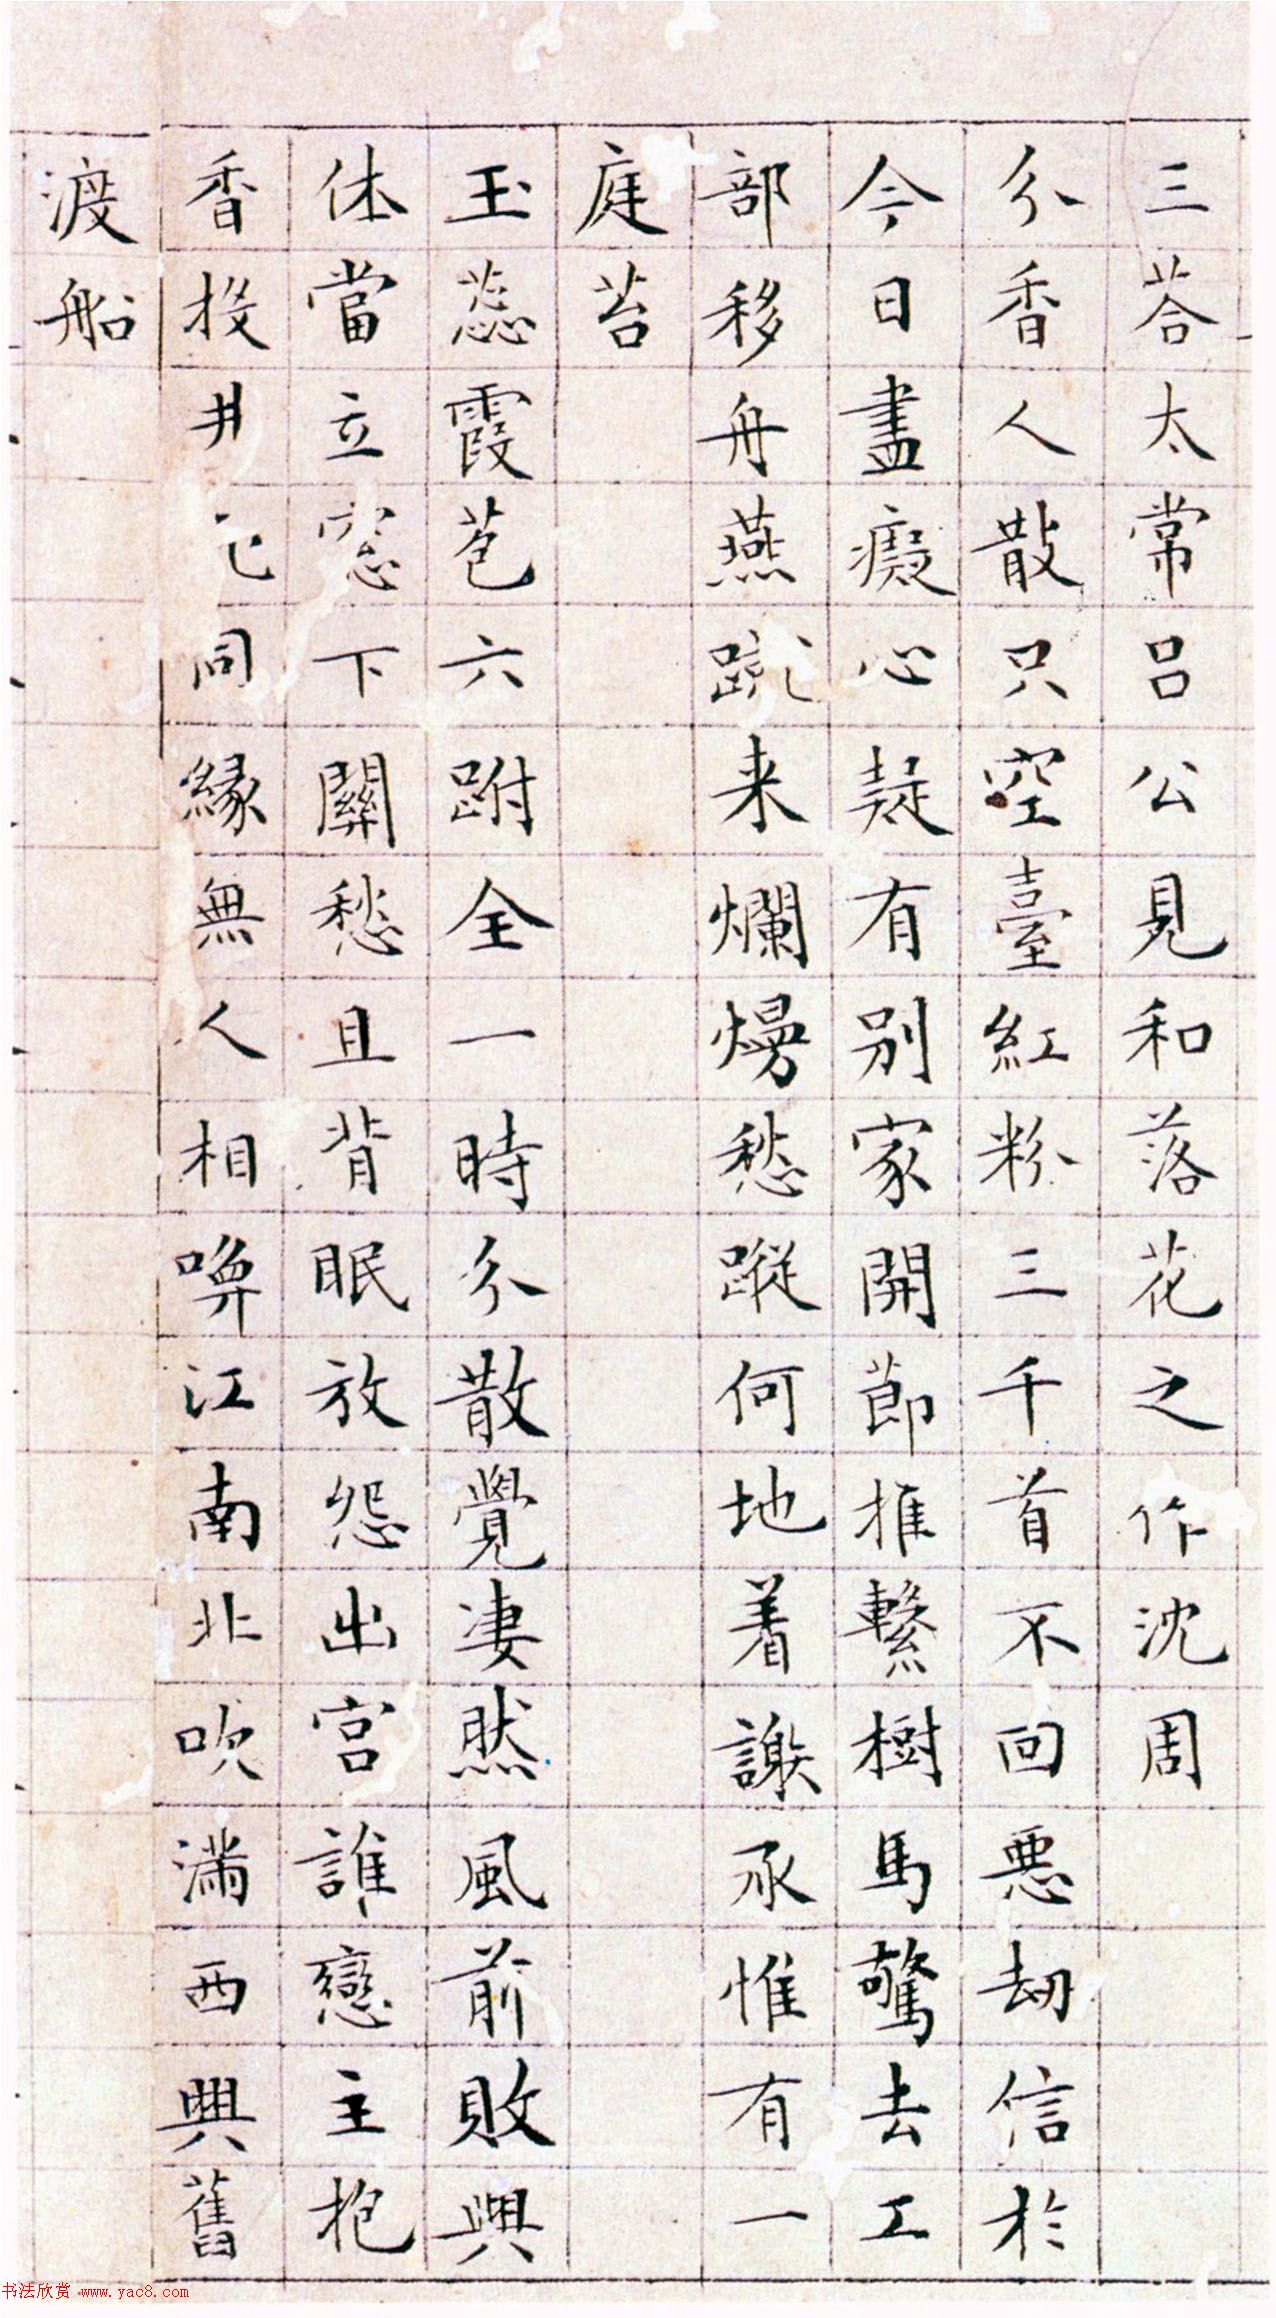 三荅太常吕公見和落花之作沈周
分香人散只空臺紅粉三千首不回悪劫信於
今日盡癡心疑有别家開節推繫樹馬驚去工
部移舟燕蹴来爛熳愁蹤何地着謝承惟有一
庭苔
玉蕊霞苞六跗全一時分散覺凄然風前敗興
休當立窓下關愁且背眠放怨出宫誰戀主抱
香投井同縁無人相喚江南北吹滿西興舊
渡船
书法欣赏 www.yac8.com